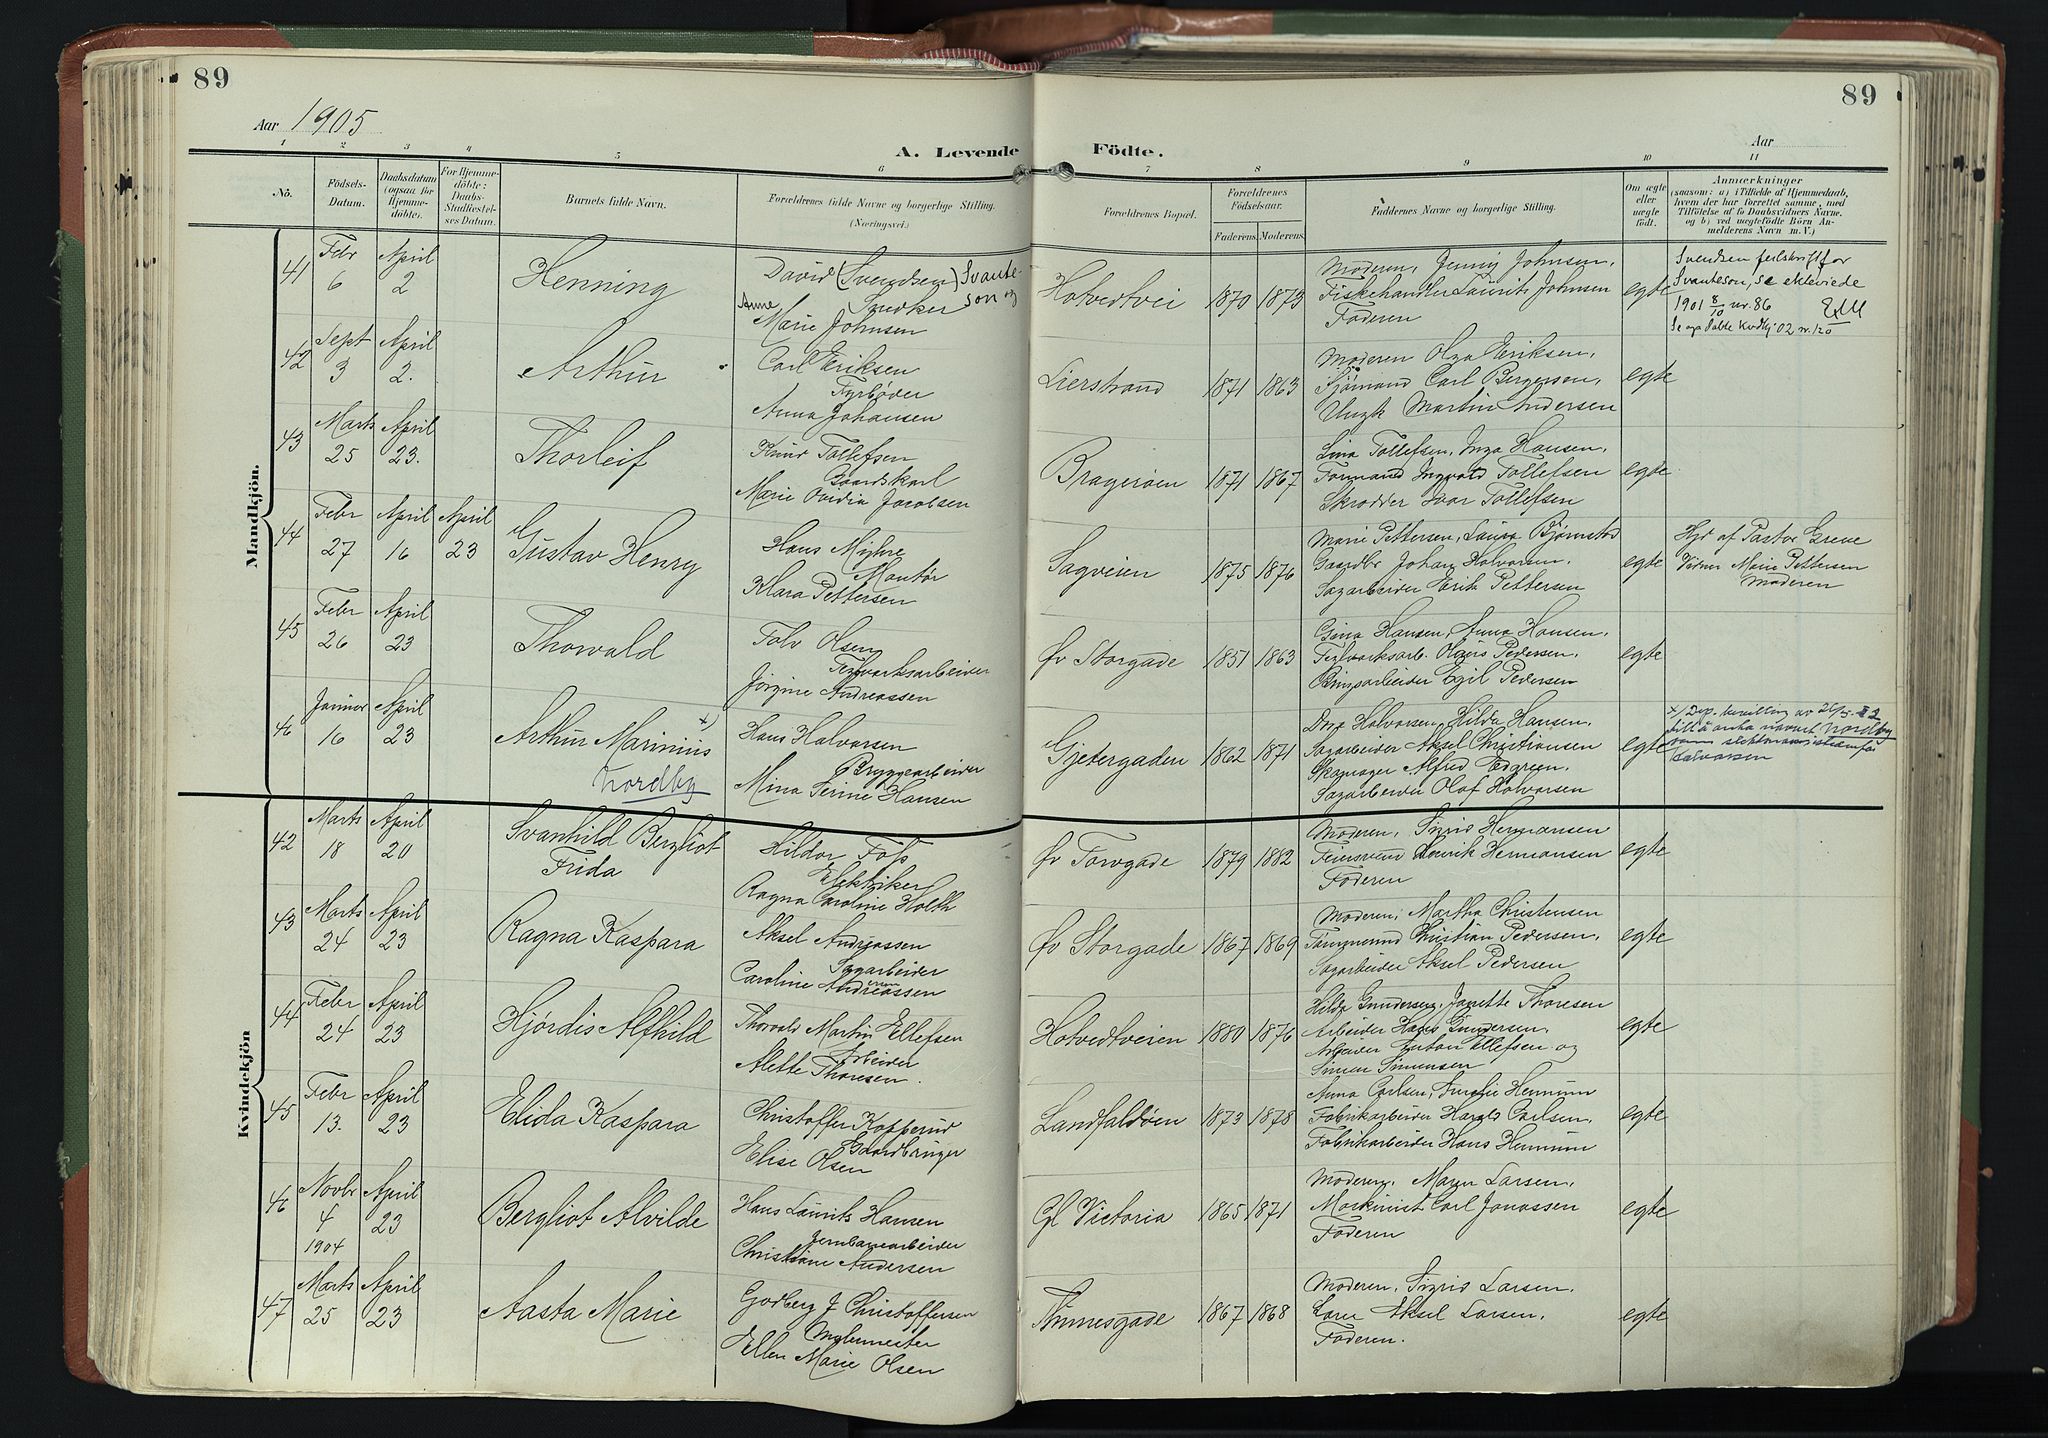 89
89
Aar 1905
Aar
A. Levende Födte.
1 2 3 4 5 6 7 8 9 10 11
No.
Födsels-Datum.
Daabsdatum (ogsaa for Hjemmedöbte).
For Hjemmedöbte: Daabs-Stadfæstelses Datum.
Barnets fulde Navn.
Forældrenes fulde Navne og borgerlige Stilling. (Næringsvei.)
Forældrenes Bopæl.
Forældrenes Födselsaar.
Faderens. Moderens.
Faddernes Navne og borgerlige Stilling.
Om ægte eller uægte födt.
Anmærkninger
(saasom: a) i Tilfælde af Hjemmedaab, hvem der har forrettet samme, med Tilföielse af to Daabsvidners Navne. og b) ved uægtefödte Börn Anmelderens Navn m. V.)
Mandkjön.
41 Febr 6 April 2 Henning
David (Svendsen) Svanteson og
Snedker
Anne Marie Johnsen
Hotvedtvei 1870 1873
Moderen, Jenny Johnsen,
Fiskehandler Laurits Johnsen
Faderen
egte
Svendsen feilskrift for
Svanteson, se ekteviede
1901 8/10 nr. 86
42 Sept 3 April 2. Arthur
Carl Eriksen
Fyrbøder
Anna Johansen
Lierstrand 1871 1863
Moderen Olga Eriksen,
Sjömand Carl Bergersen,
Ungk Martin Andersen
egte
43 Marts 25 April 23. Thorleif
Knud Tollefsen
Gaardskarl
Marie Ovidia Jacobsen
Bragerøen 1871 1867
Lina Tollefsen, Inga Hansen,
Formand Ingvald Tollefsen
Skrædder Ivar Tollefsen
egte
44 Febr 27 April 16 April 23 Gustav Henry
Hans Myhre
Montör
Klara Pettersen
Sagveien 1875 1876
Marie Pettersen, Laura Bjørnstad
Gaardbr Johan Halvorsen,
Sagarbeider Erik Pettersen
egte
Hjd af Pastor Greve
Vidner Marie Pettersen
Moderen
45 Febr 26 April 23 Thorvald
Tolv Olsen
Teglværksarbeider
Jörgine Andreassen
Øv Storgade 1851 1863
Gina Hansen, Anna Hansen,
Teglværksarb. Olaus Pedersen,
Egil Pedersen
egte
46 Januar 16 April 23 Arthur Marinius x)
Nordby
Hans Halvorsen
Bryggearbeider
Mina Serine Hansen
Gjetergaden 1862 1871
Inga Halvorsen, Hilda Hansen,
Sagarbeider Aksel Christiansen
Skomager Alfred Edgreen,
Sagarbeider Olaf Halvorsen
egte
x) Dep. bevilling av 26/5
til å anta navnet Nordby
som slektsnavn istedenfor
Halvorsen
Kvindekjön
42 Marts 18 April 20 Svanhild Bergliot
Frida
Hildor Foss
Elektriker
Ragna Caroline Holth
Øv Torvgade 1879 1882
Moderen, Sigrid Hermansen
Feiersvend Henrik Hermansen
Faderen
egte
43 Marts 24 April 23 Ragna Kaspara
Aksel Andreassen
Sagarbeider
Caroline Andreassen
Øv Storgade 1867 1869
Moderen, Martha Christensen
Tømmermand Christian Pedersen,
Sagarbeider Aksel Pedersen
egte
44 Febr 24 April 23 Hjördis Alfhild
Thorvald Martin Ellefsen
Arbeider
Alette Thoresen.
Hotvedtveien 1880 1876
Hilda Gundersen, Janette Thoresen
Arbeider Hans Gundersen.
Arbeider Anton Ellefsen og
Simon Simensen
egte
45 Febr 13. April 23 Elida Kaspara
Christoffer Kopperud
Gaardbruger
Elise Olsen
Landfaldöen 1873 1878
Anna Carlsen, Aurelie Hennum
Fabrikarbeider Harald Carlsen,
Fabrikarbeider Hans Hennum
egte
46 Novbr 4 1904 April 23 Bergliot Alvilde
Hans Laurits Hansen
Jernbanearbeider
Christiane Andersen
Gl Victoria 1865 1871
Moderen, Maren Larsen,
Maskinist Carl Jonassen
Faderen
egte
47 Marts 25 April 23 Aasta Marie
Godberg J Christoffersen
Malermester
Ellen Marie Olsen
Tinnesgade 1867 1868
Moderen, Sigrid Larsen,
Aksel Larsen,
Faderen.
egte